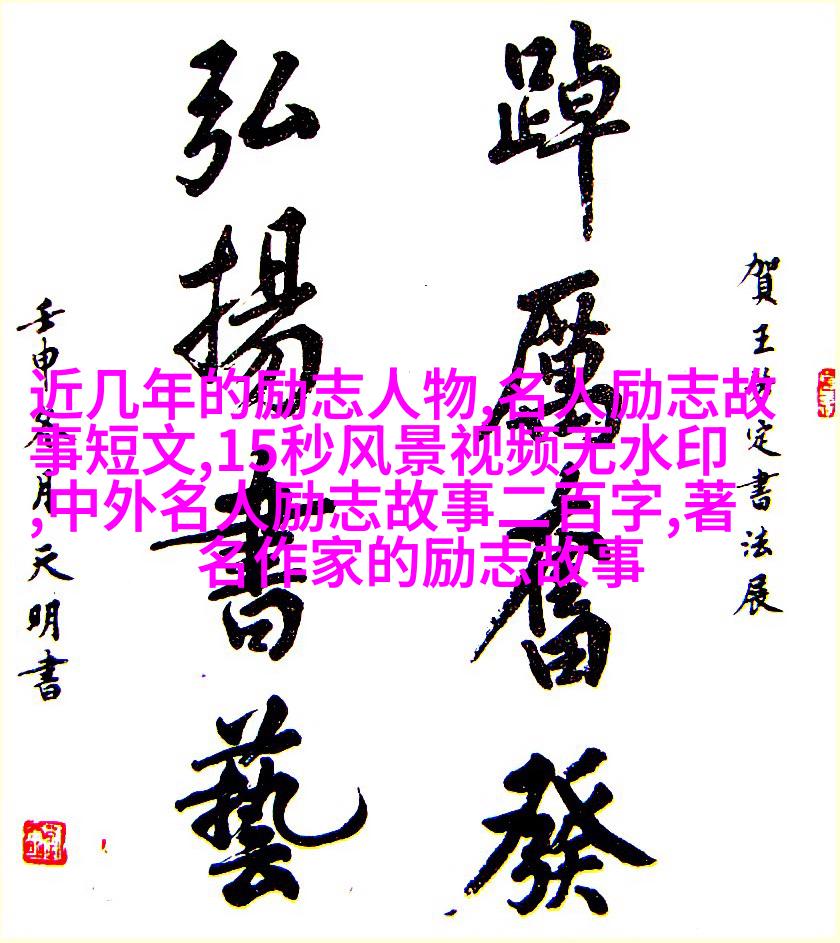 賀王定書法展
踔厲奮發
弘揚書藝
壬申冬月天明書
近几年的励志人物,名人励志故
事短文,15秒风景视频无水印
,中外名人励志故事二百字,著
名作家的励志故事